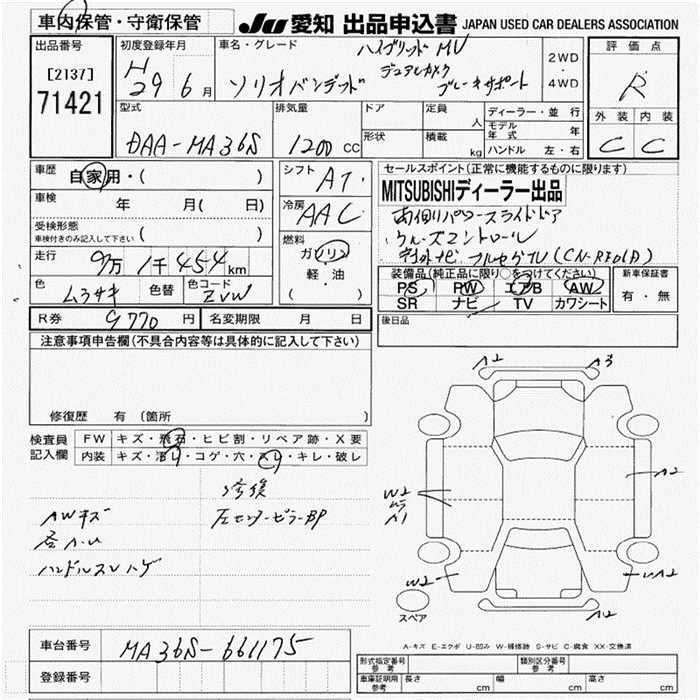 車内保管・守衛保管
JU 愛知 出品申込書 JAPAN USED CAR DEALERS ASSOCIATION
出品番号
[2137]
71421
初度登録年月
H 29 6 月
車名・グレード
ハイブリッド MV
デュアルカメラ
ブレーキサポート
ソリオバンデット
2WD
・
4WD
評価点
R
外装 内装
C C
型式
DAA-MA36S
排気量
1200 CC
ドア
定員
人
形状
積載
kg
ディーラー・並行
モデル年式 年
ハンドル 左・右
車歴
自家用・( )
車検
年 月( 日)
受検形態
車検付きのみ記入して下さい ( )
走行
9万 1千 454 km
色
ムラサキ
色替
色コード
ZVW
シフト
AT
冷房
AAC
燃料
ガソリン
・
軽・油
・
( )
セールスポイント(正常に機能するものに限ります)
MITSUBISHIディーラー出品
両側パワースライドドア
クルーズコントロール
社外ナビ フルセグTV (CN-RE01A)
装備品(純正品に限り○を付けてください)
PS PW エアB AW
SR ナビ TV カワシート
新車保証書
有・無
後日品
R券 9770 円
名変期限 月 日
注意事項申告欄(不具合内容等は具体的に記入して下さい)
修復歴 有(箇所 )
検査員記入欄
FW キズ・飛石・ヒビ割・リペア跡・X要
内装 キズ・汚レ・コゲ・穴・スレ・キレ・破レ
修復
AWキズ
左センターピラーBP
ハンドルスレハゲ
A2
A3
A2
W2
A1
W2
UA2
A2
スペア
A-キズ E-エクボ U-凹み W-補修跡 S-サビ C-腐食 XX-交換済
車台番号
MA36S-661175
登録番号
形式指定番号
参考
類別区分番号
参考
車庫証明用
参考
長さ cm
幅 cm
高さ cm